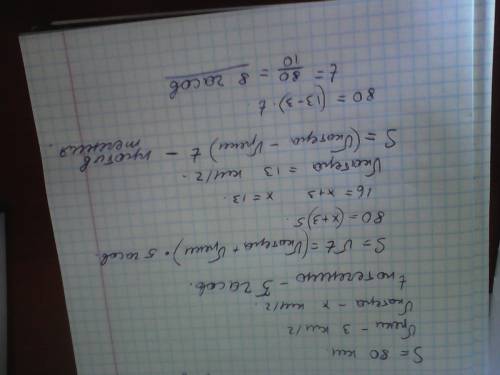 S = 80 км
Vреки – 3 км/ч
Vкатера – x км/ч.
t по течению – 5 часов.
S = Vt = (Vкатера + Vреки) · 5 часов.
80 = (x+3)5
16 = x+3 x = 13.
Vкатера = 13 км/ч.
S = (Vкатера – Vреки) t – против течения.
80 = (13-3)·t
t = 80/10 = 8 часов